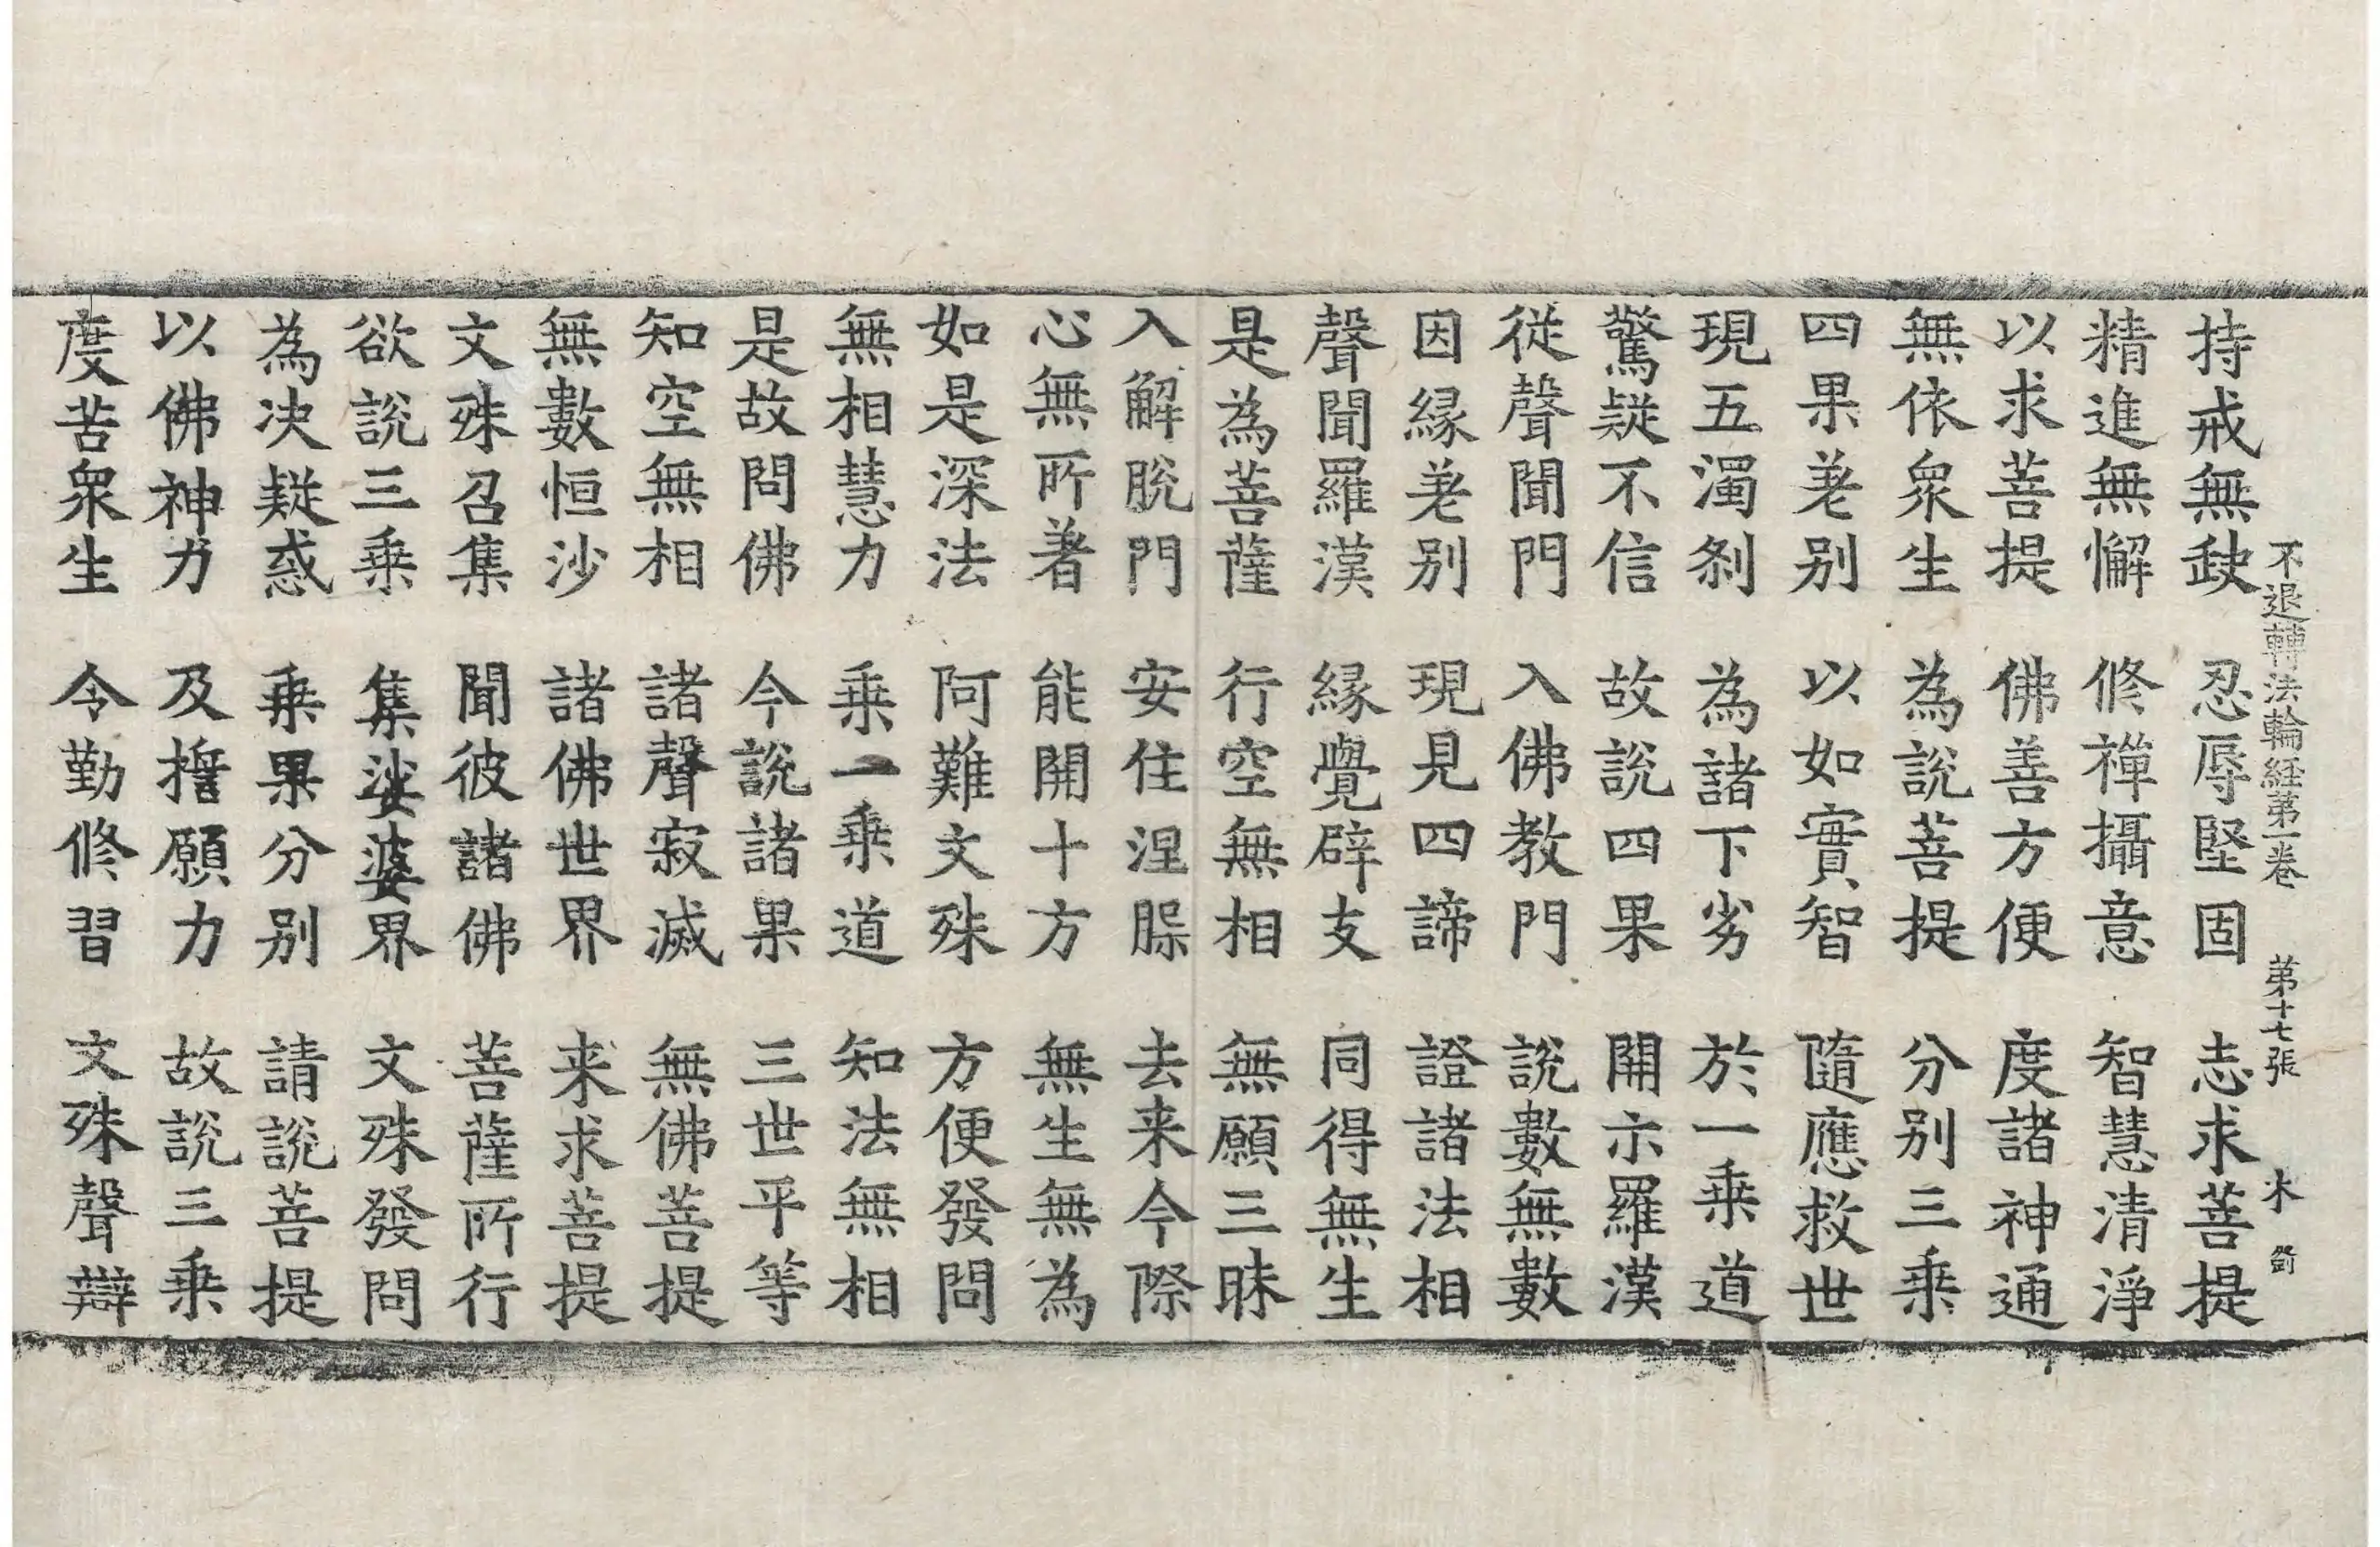 不退轉法輪経第一卷 第十七張 木
持戒無缺 忍辱堅固 志求菩提
精進無懈 修禅攝意 智慧清淨
以求菩提 佛善方便 度諸神通
無依衆生 為説菩提 分别三乗
四果差别 以如實智 隨應救世
現五濁刹 為諸下劣 於一乗道
驚疑不信 故説四果 開示羅漢
従聲聞門 入佛教門 説數無數
因縁差别 現見四諦 證諸法相
聲聞羅漢 縁覺辟支 同得無生
是為菩薩 行空無相 無願三昧
入解脫門 安住涅槃 去来今際
心無所著 能開十方 無生無為
如是深法 阿難文殊 方便發問
無相慧力 乗一乗道 知法無相
是故問佛 今説諸果 三世平等
知空無相 諸聲寂滅 無佛菩提
無數恒沙 諸佛世界 来求菩提
文殊召集 聞彼諸佛 菩薩所行
欲説三乗 集娑婆界 文殊發問
為决疑惑 乗果分别 請説菩提
以佛神力 及誓願力 故説三乗
度苦衆生 令勤修習 文殊聲辯